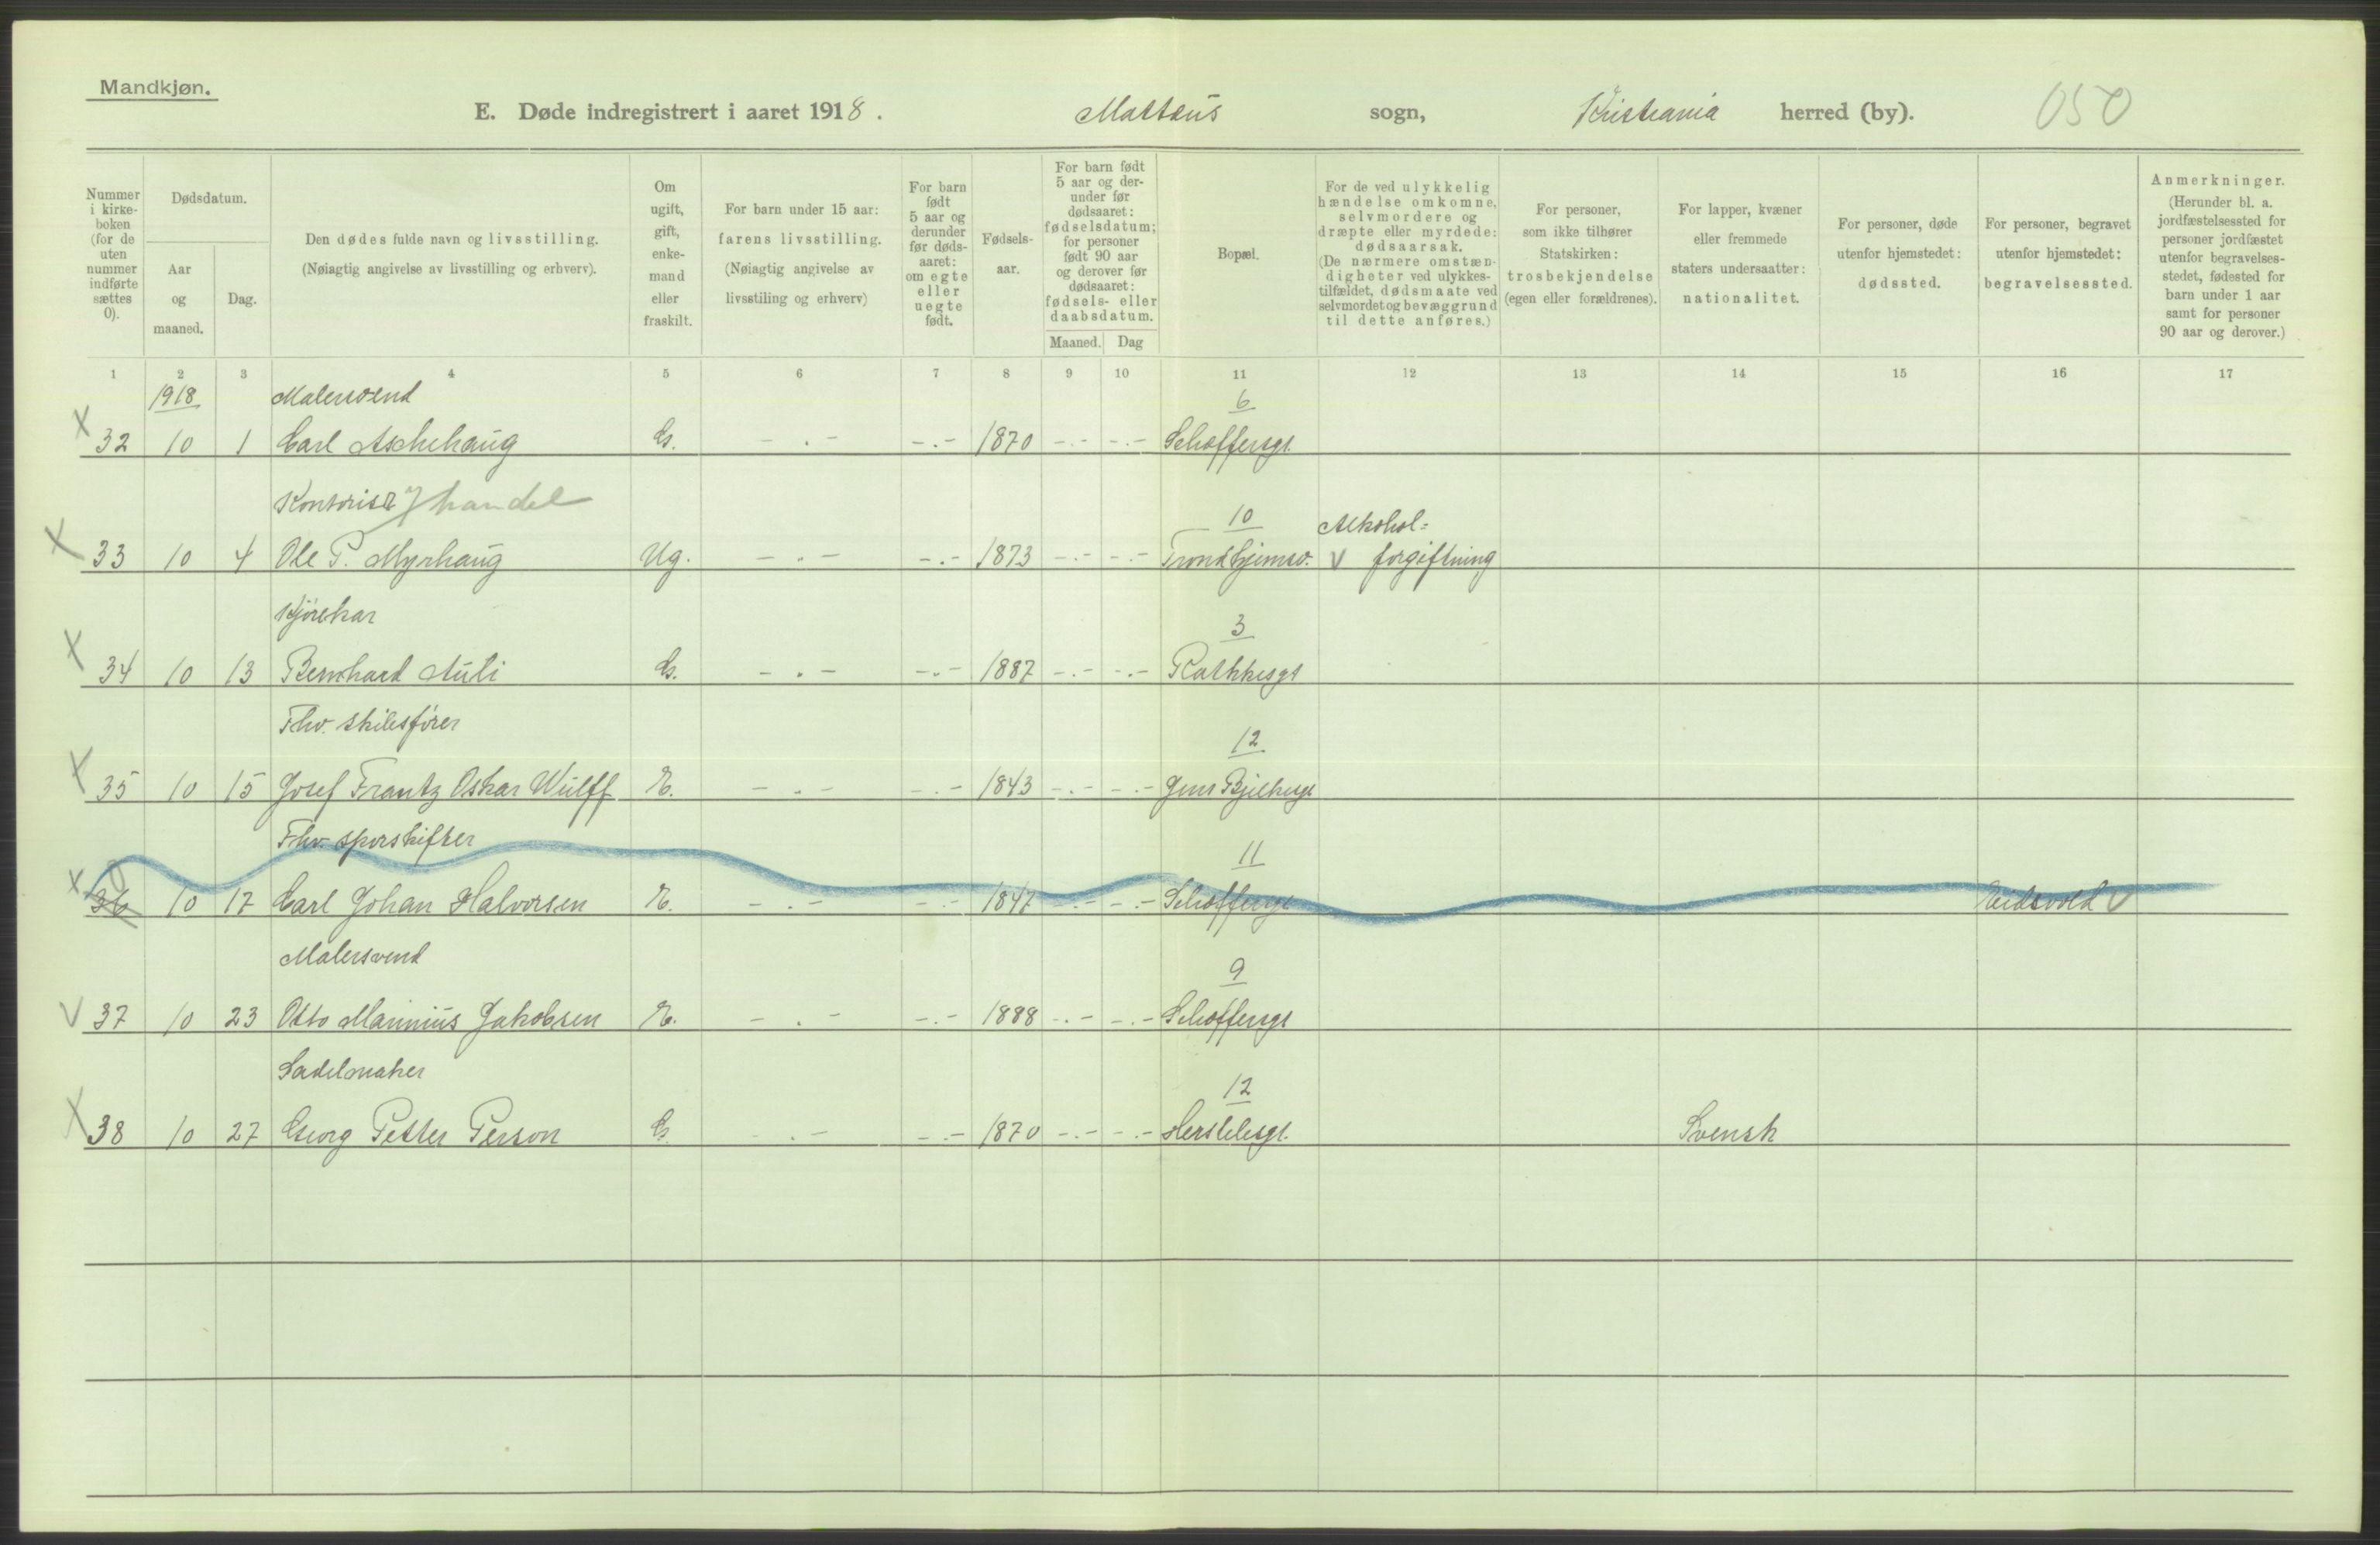 Mandkjøn.
E. Døde indregistrert i aaret 1918. Mattæus sogn, Kristiania herred (by). 050
Nummer i kirke-boken (for de uten nummer indførte sættes 0).
Dødsdatum.
Aar og maaned.
Dag.
Den dødes fulde navn og livsstilling.
(Nøiagtig angivelse av livsstilling og erhverv).
Om ugift, gift, enke-mand eller fraskilt.
For barn under 15 aar:
farens livsstilling.
(Nøiagtig angivelse av
livsstiling og erhverv)
For barn født 5 aar og derunder før døds-aaret: om egte eller uegte født.
Fødsels-aar.
For barn født 5 aar og der-under før dødsaaret: fødselsdatum; for personer født 90 aar og derover før dødsaaret: fødsels- eller daabsdatum.
Maaned. Dag
Bopæl.
For de ved ulykkelig hændelse omkomne, selvmordere og dræpte eller myrdede: dødsaarsak.
(De nærmere omstæn-digheter ved ulykkes-tilfældet, dødsmaate ved selvmordet og bevæggrund til dette anføres.)
For personer, som ikke tilhører Statskirken: trosbekjendelse (egen eller forældrenes).
For lapper, kvæner eller fremmede staters undersaatter: nationalitet.
For personer, døde utenfor hjemstedet: dødssted.
For personer, begravet utenfor hjemstedet: begravelsessted.
Anmerkninger.
(Herunder bl. a. jordfæstelsessted for personer jordfæstet utenfor begravelses-stedet, fødested for barn under 1 aar samt for personer 90 aar og derover.)
1 2 3 4 5 6 7 8 9 10 11 12 13 14 15 16 17
1918 Malersvend 6
X 32 10 1 Carl Aschehaug G. - . - - . - 1870 - . - - . - Schoffersgt.
Kontorist handel 10 Alkohol=
X 33 10 4 Ole P. Myrhaug Ug. - . - - . - 1873 - . - - . - Trondhjemsv. V forgiftning
Kjørekar 3
X 34 10 13 Bernhard Auli G. - . - - . - 1887 - . - - . - Rathkesgt
Fhv. skibsfører 12
X 35 10 15 Josef Frantz Oskar Wulff E. - . - - . - 1843 - . - - . - Jens Bjelkesgt
Fhv. sporskifter 11
X 36 0 10 17 Carl Johan Halvorsen E. - . - - . - 1847 - . - - . - Schoffersgt Eidsvold V
Malersvend 9
V 37 10 23 Otto Marinius Jakobsen E. - . - - . - 1888 - . - - . - Schoffersgt
Sadelmaker 12
X 38 10 27 Georg Petter Person G. - . - - . - 1870 - . - - . - Herslebsgt. Svensk